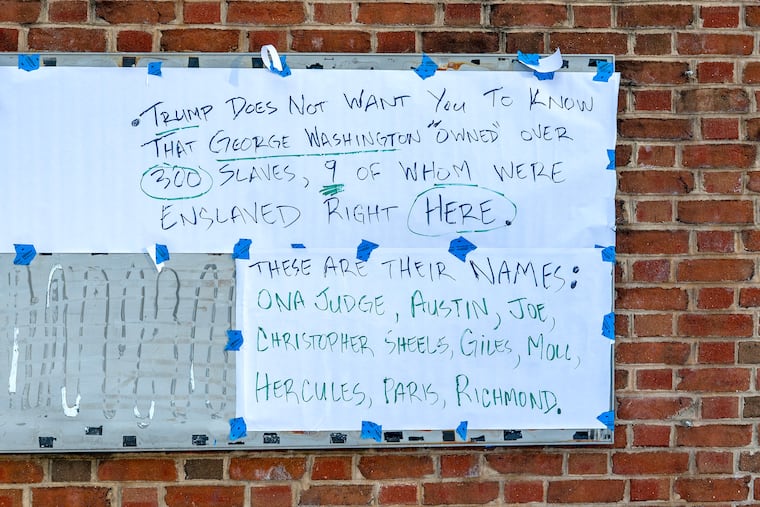 • TRUMP DOES NOT WANT YOU TO KNOW
THAT GEORGE WASHINGTON "OWNED" OVER
300 SLAVES, 9 OF WHOM WERE
ENSLAVED RIGHT HERE.
THESE ARE THEIR NAMES:
ONA JUDGE, AUSTIN, JOE,
CHRISTOPHER SHEELS, GILES, MOLL,
HERCULES, PARIS, RICHMOND.